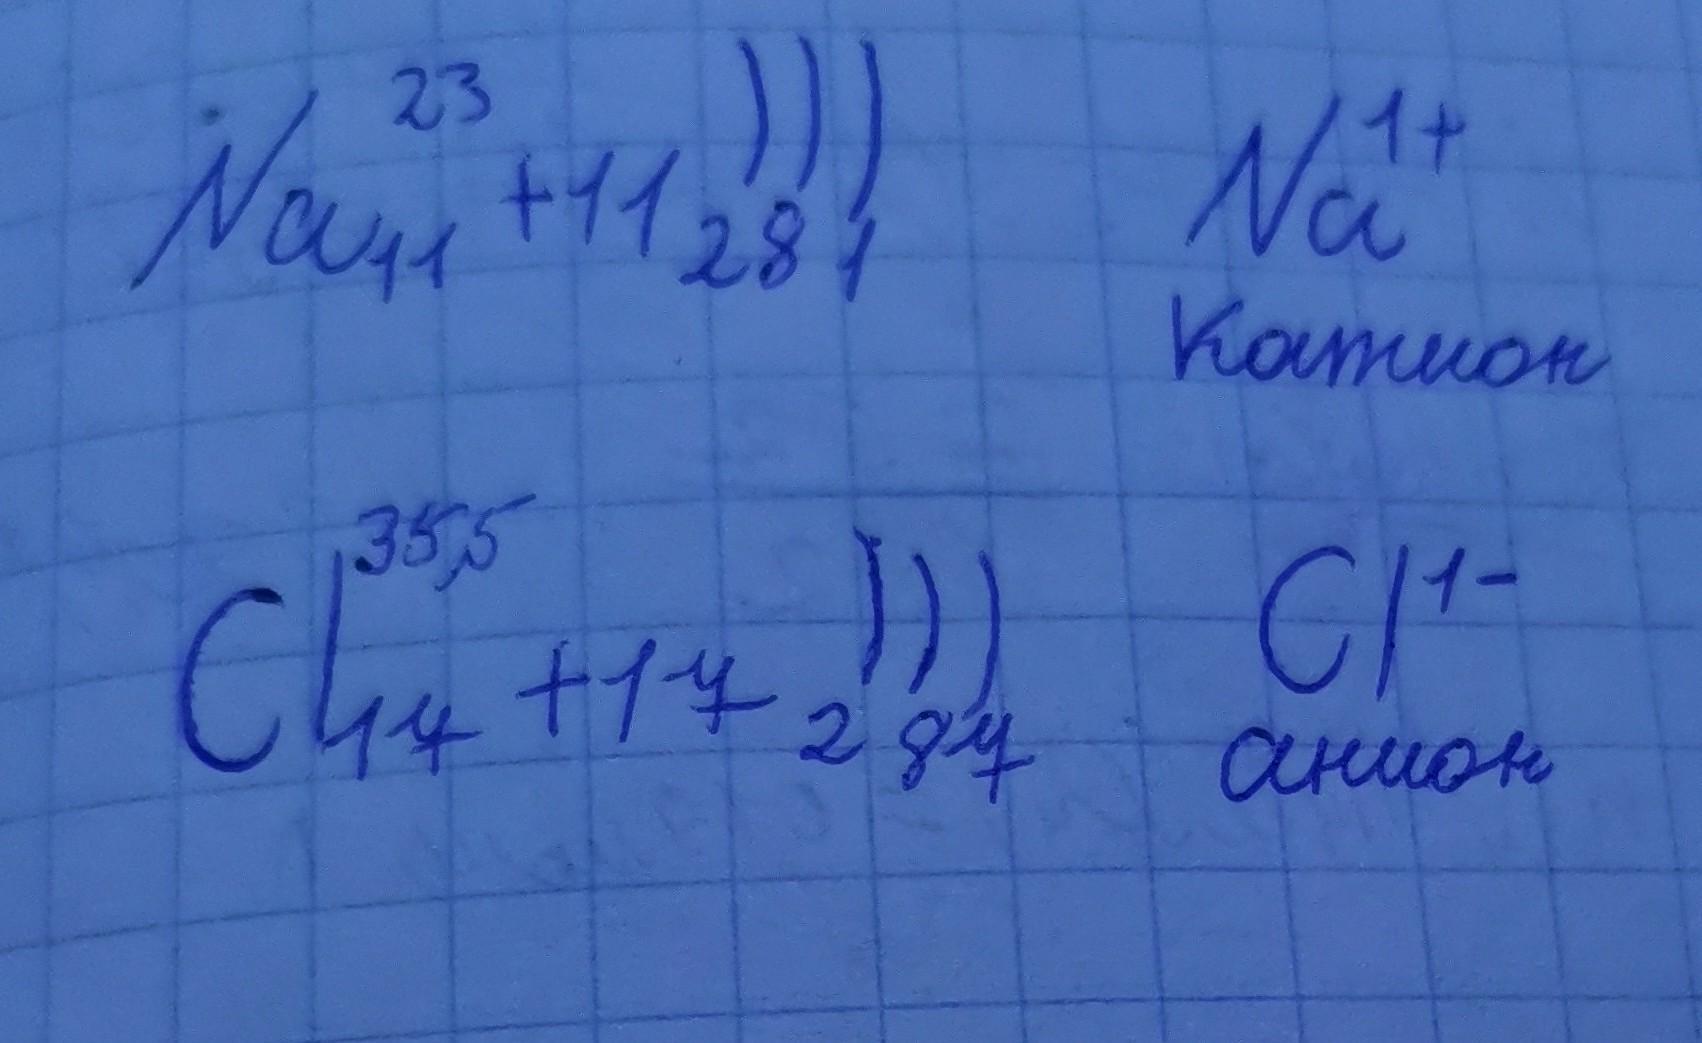 Na 23 11 +11 ))) 2 8 1 Na 1+
катион
Cl 35,5 17 +17 ))) 2 8 7 Cl 1-
анион